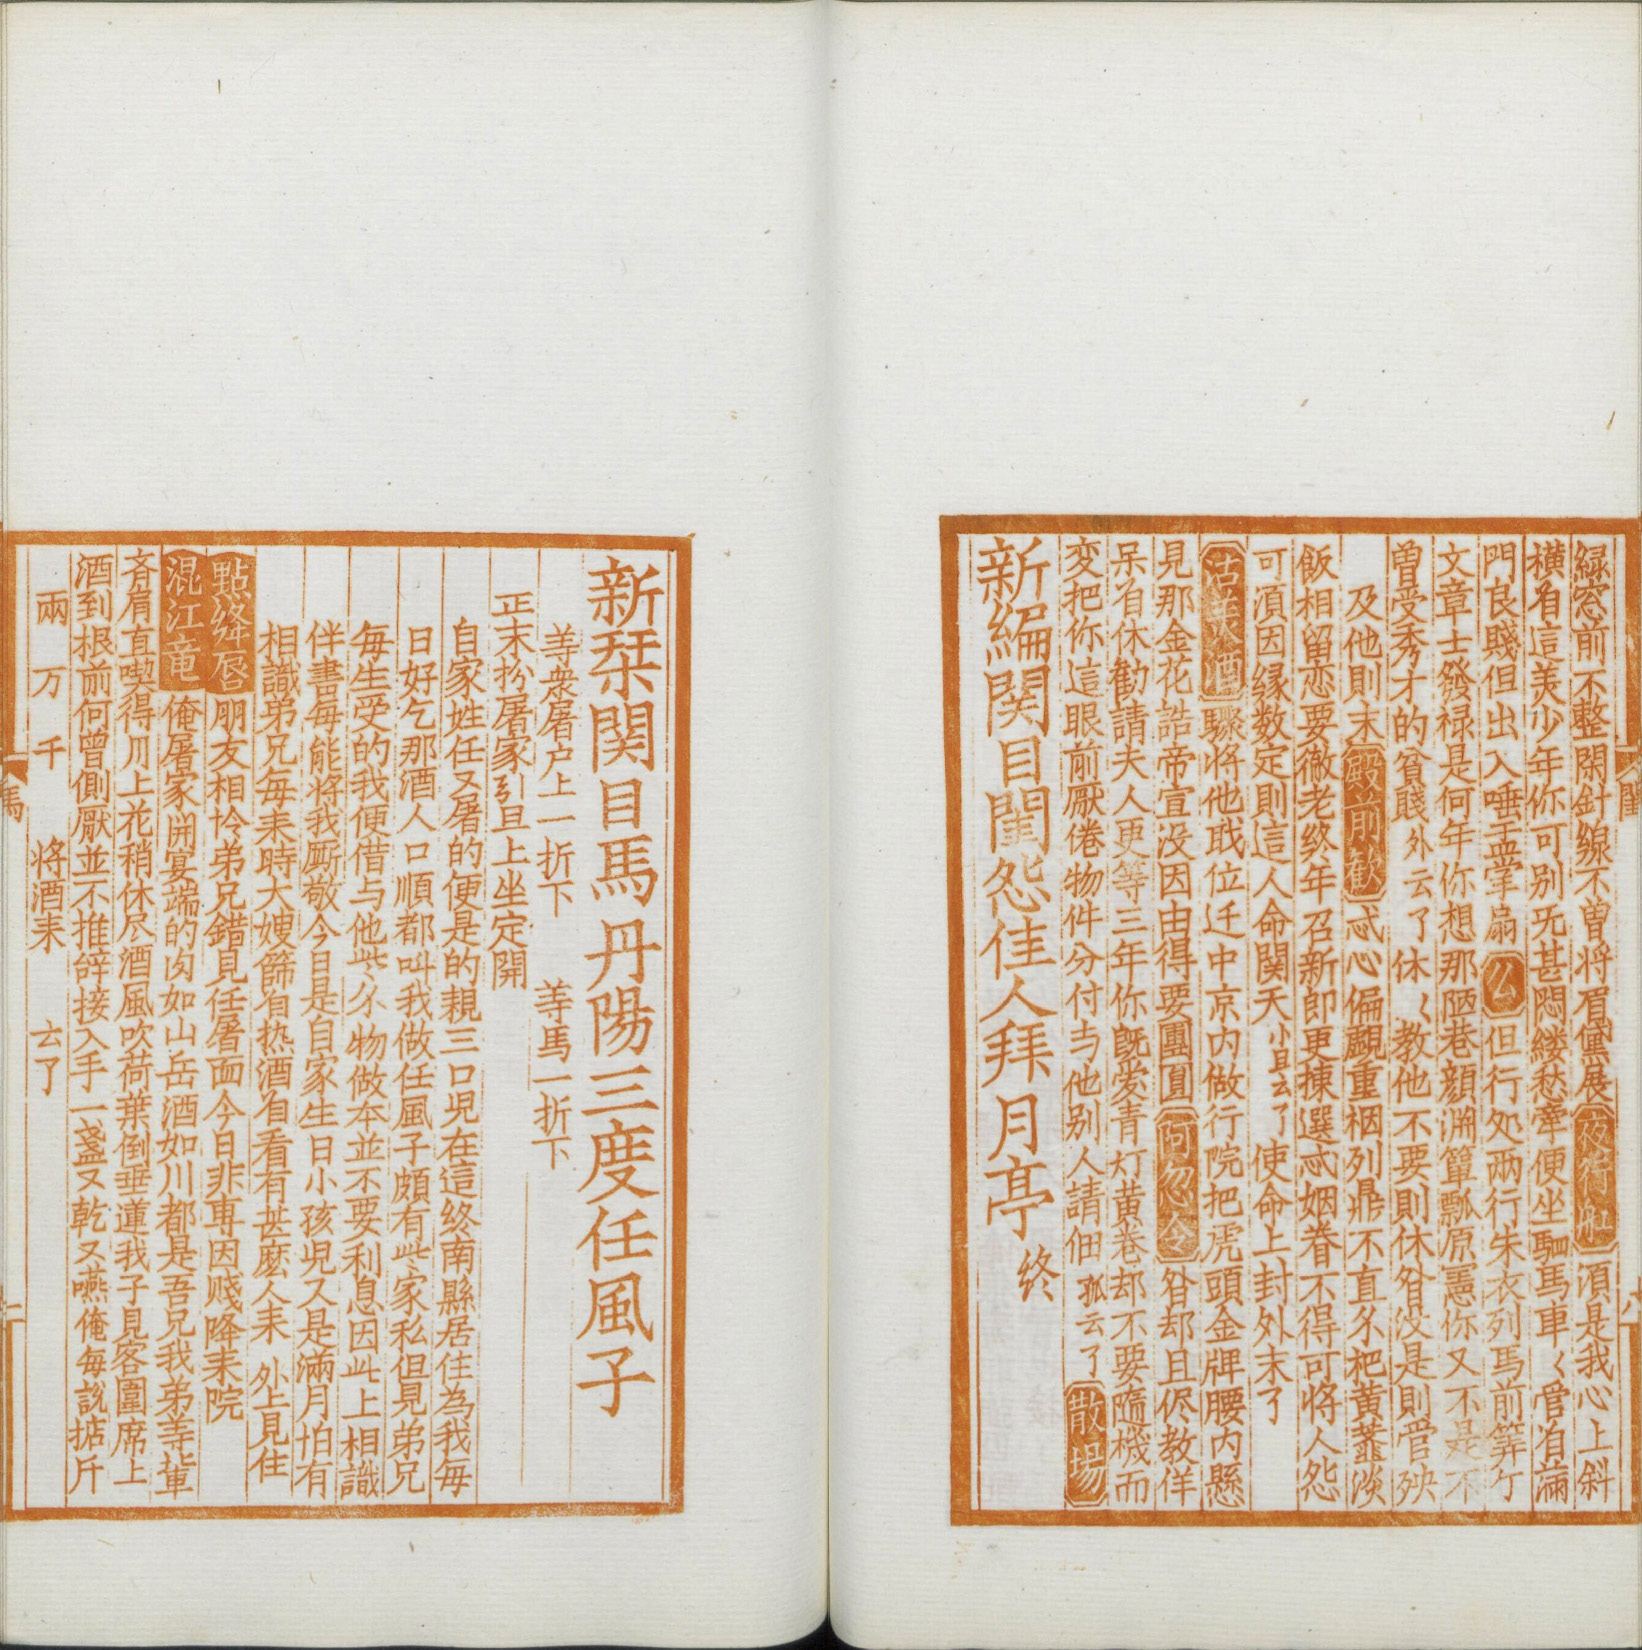 緑窓前不整閑針線不曾将眉黛展夜行舡須是我心上斜
横有這美少年你可别旡甚悶縷愁牽便坐駟馬車〱管有滿
門良賤但出入唾盂掌扇么但行处兩行朱衣列馬前筭个
文章士發禄是何年你想那陋巷顔渊簞瓢原憲你又不是不
曾受秀才的貧賤外云了休〱教他不要則休咱没是則管殃
及他則末殿前歡忒心偏覷重裀列鼎不直尒杷黄虀淡
飯相留恋要徹老终年召新郎更揀選忒姻眷不得可将人怨
可湏因縁数定則這人命関天小旦云了使命上封外末了
沽美酒驟将他戝位迁中京内做行院把虎頭金牌腰内懸
見那金花誥帝宣没因由得要團圓阿忽令咱却且侭教佯
呆有休勸請夫人更等三年你既爱青灯黄巷却不要隨機而
変把你這眼前厭倦物件分付与他别人請佃孤云了散場
新編関目閨怨佳人拜月亭终
閨
八
新栞関目馬丹陽三度任風子
等衆屠户上一折下 等馬一折下
正末扮屠家引旦上坐定開
自家姓任又屠的便是的親三口児在這终南縣居住為我每
日好乞那酒人口順都叫我做任風子頗有些家私但見弟兄
每生受的我便借与他些尒物做本並不要利息因此上相識
伴書每能将我厮敬今日是自家生日小孩児又是滿月怕有
相識弟兄每耒時大嫂篩有热酒有看有甚麽人耒 外上見住
點絳唇朋友相怜弟兄錯見任屠面今日非専因贱降耒院
混江竜俺屠家開宴端的肉如山岳酒如川都是吾兄我弟等輩
斉肩直喫得川上花稍休尽酒風吹荷葉倒垂蓮我子見客圍席上
酒到根前何曾側厭並不推辞接入手一盞又乾又嚥俺每說掂斤
兩万千 将酒耒 云了
馬
一